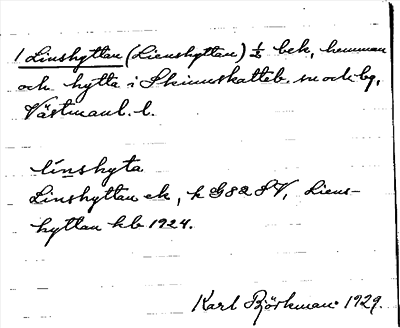 1 Linshyttan (Lienshyttan) ½ bek. hemman
och hytta i Skinnskatteb. sn och bg,
Västmanl. l.
línshyta
Linshyttan ek, k G82 SV, Liens-
hyttan kb 1924.
Karl Björkman 1929.